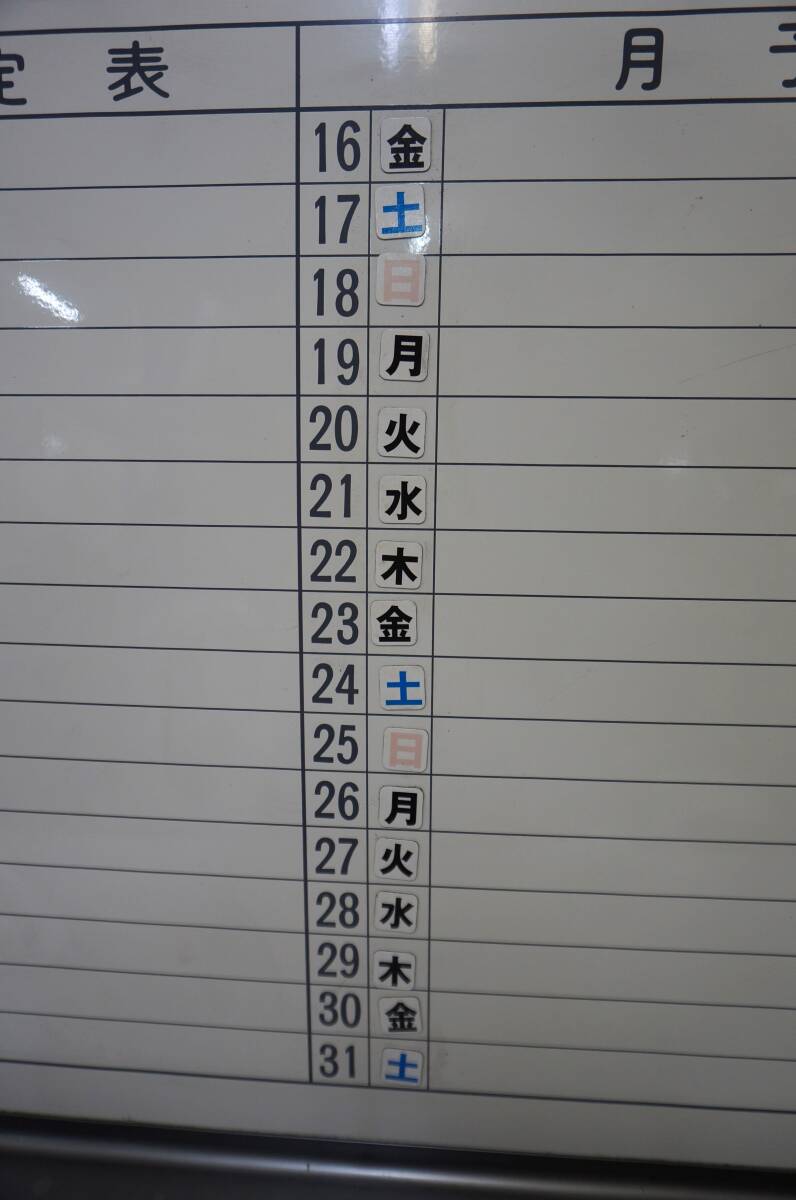 定 表
月 予
16 金
17 土
18 日
19 月
20 火
21 水
22 木
23 金
24 土
25 日
26 月
27 火
28 水
29 木
30 金
31 土